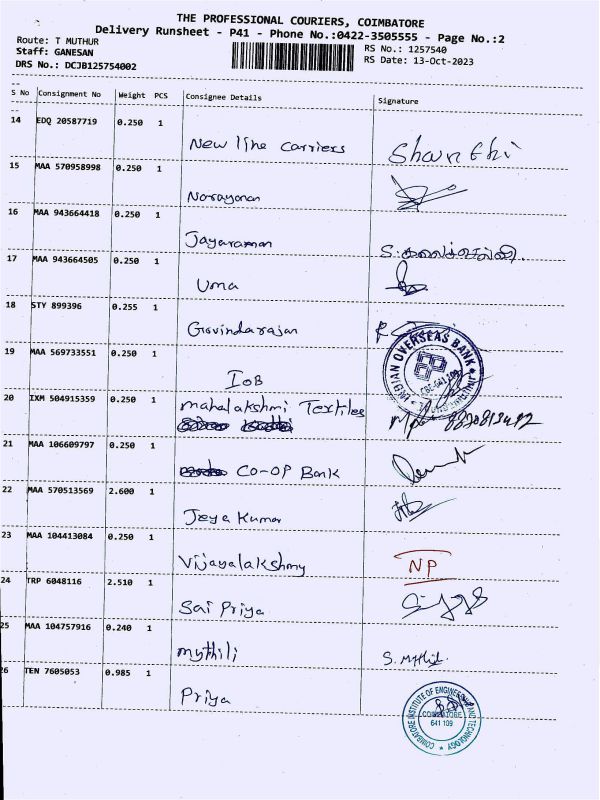 THE PROFESSIONAL COURIERS, COIMBATORE
Delivery Runsheet - P41 - Phone No.:0422-3505555 - Page No.:2
Route: T MUTHUR
RS No.: 1257540
Staff: GANESAN
RS Date: 13-Oct-2023
DRS No.: DCJB125754002
S No Consignment No Weight PCS Consignee Details Signature
14 EDQ 20587719 0.250 1
New line carriers Shanthi
15 MAA 570958998 0.250 1
Narayanan
16 MAA 943664418 0.250 1
Jayaraman S. கலைச்செல்வி.
17 MAA 943664505 0.250 1
Uma
18 STY 899396 0.255 1
Govindarajan
19 MAA 569733551 0.250 1
IOB
INDIAN OVERSEAS BANK
20 IXM 504915359 0.250 1
Mahalakshmi Textiles
21 MAA 106609797 0.250 1
CO-OP Bank
22 MAA 570513569 2.600 1
Jeya Kumar
23 MAA 104413084 0.250 1
Vijayalakshmy NP
24 TRP 6048116 2.510 1
Sai Priya
25 MAA 104757916 0.240 1
Mythili S. Mythili.
26 TEN 7605053 0.985 1
Priya
COIMBATORE INSTITUTE OF ENGINEERING AND TECHNOLOGY
COIMBATORE
641 109